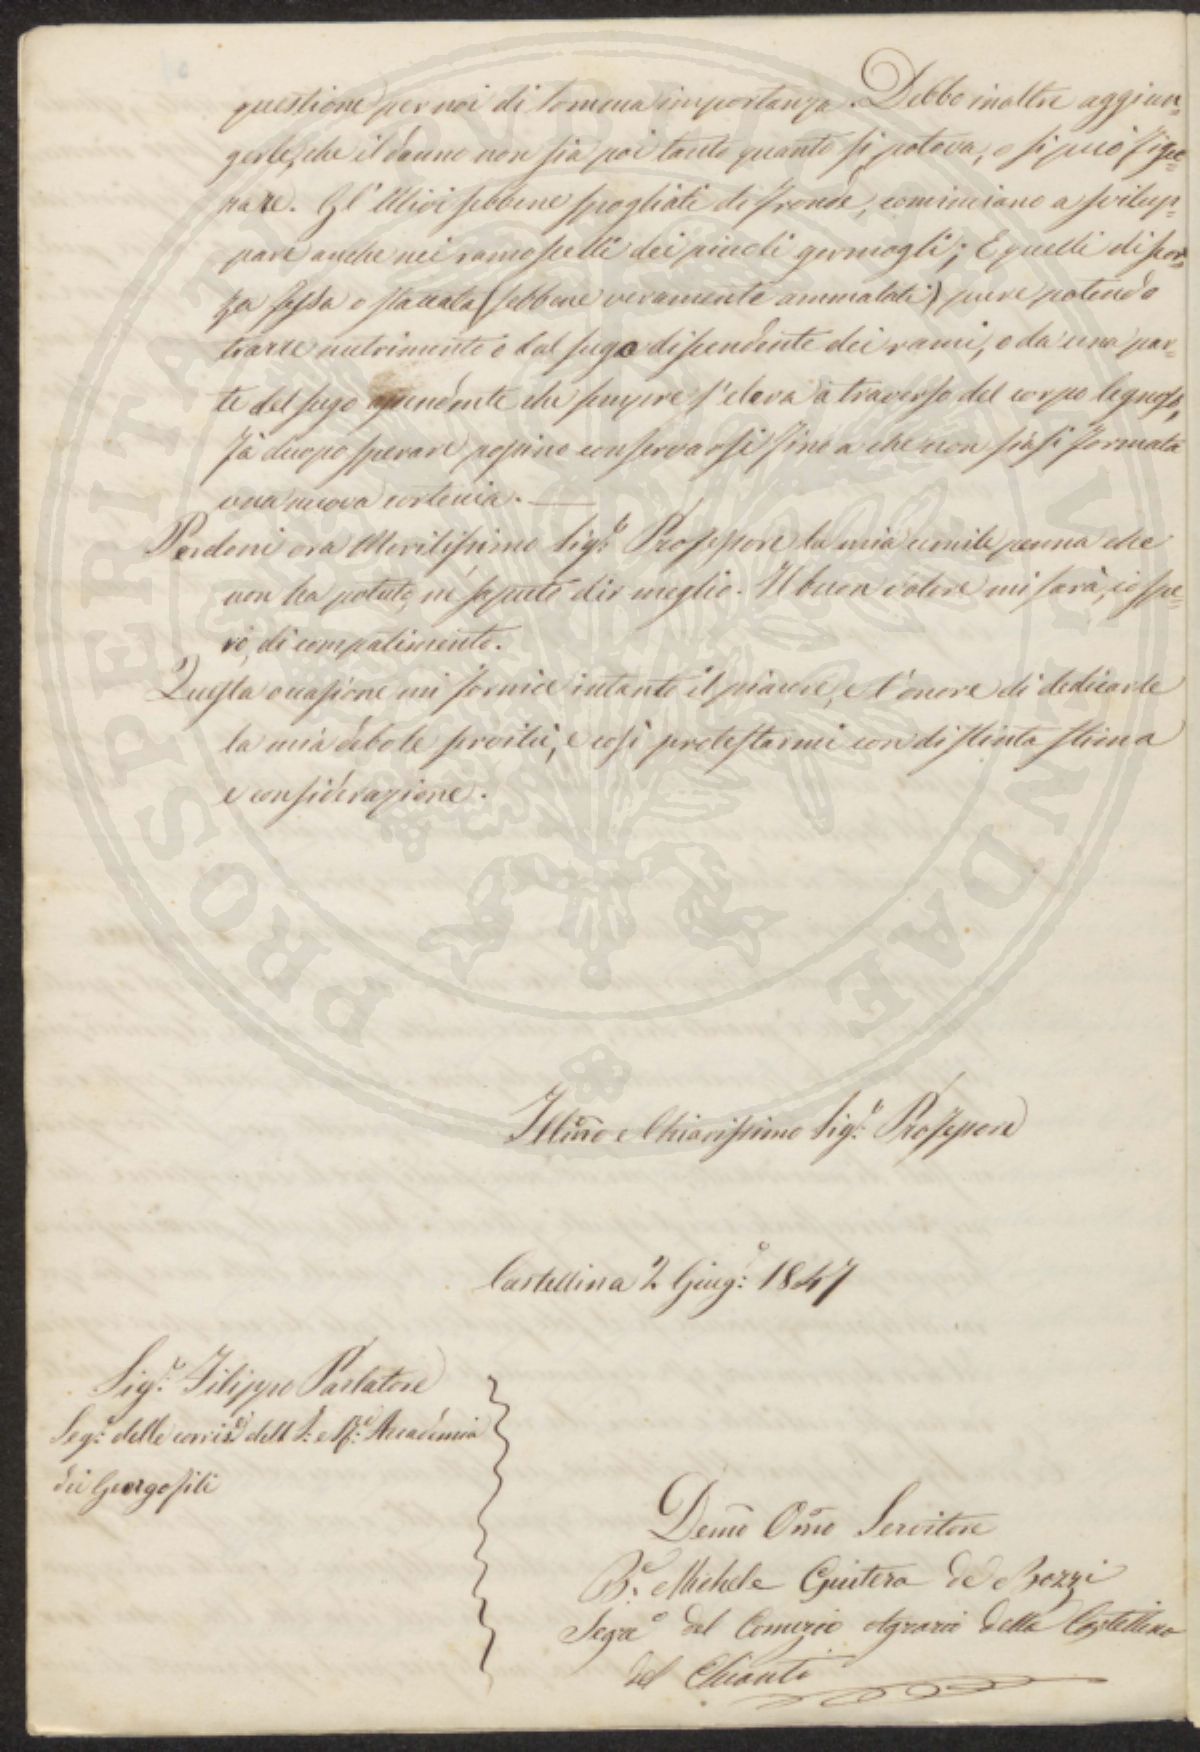 questione per noi di somma importanza. Debbo inoltre aggiun=
gerle, che il danno non sia poi tanto quanto si poteva, o si può figu=
rare. Gl' Ulivi sebbene spogliati di fronde, cominciano a svilup=
pare anche nei ramoscelli dei piccoli germogli; E quelli di scor=
za fessa o staccata (sebbene veramente ammalati) pure potendo
trarre nutrimento o dal sugo discendente dei rami, o da una par=
te del sugo ascendente che sempre s'eleva a traverso del corpo legnoso,
fà duopo sperare possino conservarsi fino a che non siasi formata
una nuova corteccia. —
Perdoni ora Meritissimo Sig.r Professore la mia umile penna che
non ha potuto, nè saputo dir meglio. Il buon volere mi sarà, io spe=
ro, di compatimento.
Questa occasione mi fornice intanto il piacere, e l'onore di dedicarle
la mia debole servitù, e così protestarmi con distinta stima
e considerazione.
Illmo e Chiarissimo Sig.r Professore
Castellina 2 Giug.o 1847
Sig.r Filippo Parlatore
Seg.o delle corrisp. dell' I. e R.e Accademia
dei Georgofili
Demo Omo Servitore
B.e Michele Guitera de Bozzi
Segr.o del Comizio Agrario della Castellina
del Chianti
PROSPERITATI PUBLICAE AUGENDAE